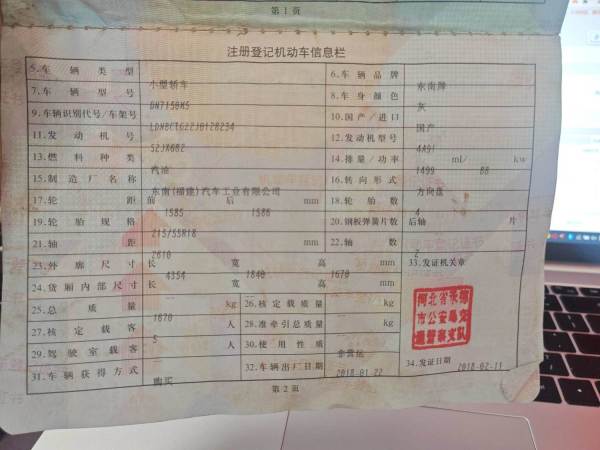 第1页
注册登记机动车信息栏
5.车辆类型 小型轿车 6.车辆品牌 东南牌
7.车辆型号 DN7150M5 8.车身颜色 灰
9.车辆识别代号/车架号 10.国产/进口 国产
11.发动机号 12.发动机型号 4A91
13.燃料种类 汽油 14.排量/功率 1499 ml/ 88 kw
15.制造厂名称 东南(福建)汽车工业有限公司 16.转向形式 方向盘
17.轮距 前 1585 后 1586 mm 18.轮胎数 4
19.轮胎规格 215/55R18 20.钢板弹簧片数 后轴 片
21.轴距 2610 mm 22.轴数 2
23.外廓尺寸 长 4354 宽 1840 高 1670 mm 33.发证机关章
24.货厢内部尺寸 长 宽 高 mm
25.总质量 1870 kg 26.核定载质量 kg
27.核定载客 5 人 28.准牵引总质量 kg
29.驾驶室载客 人 30.使用性质 非营运
31.车辆获得方式 购买 32.车辆出厂日期 2018-01-22 34.发证日期 2018-02-11
河北省承德
市公安局交
通警察支队
第2页